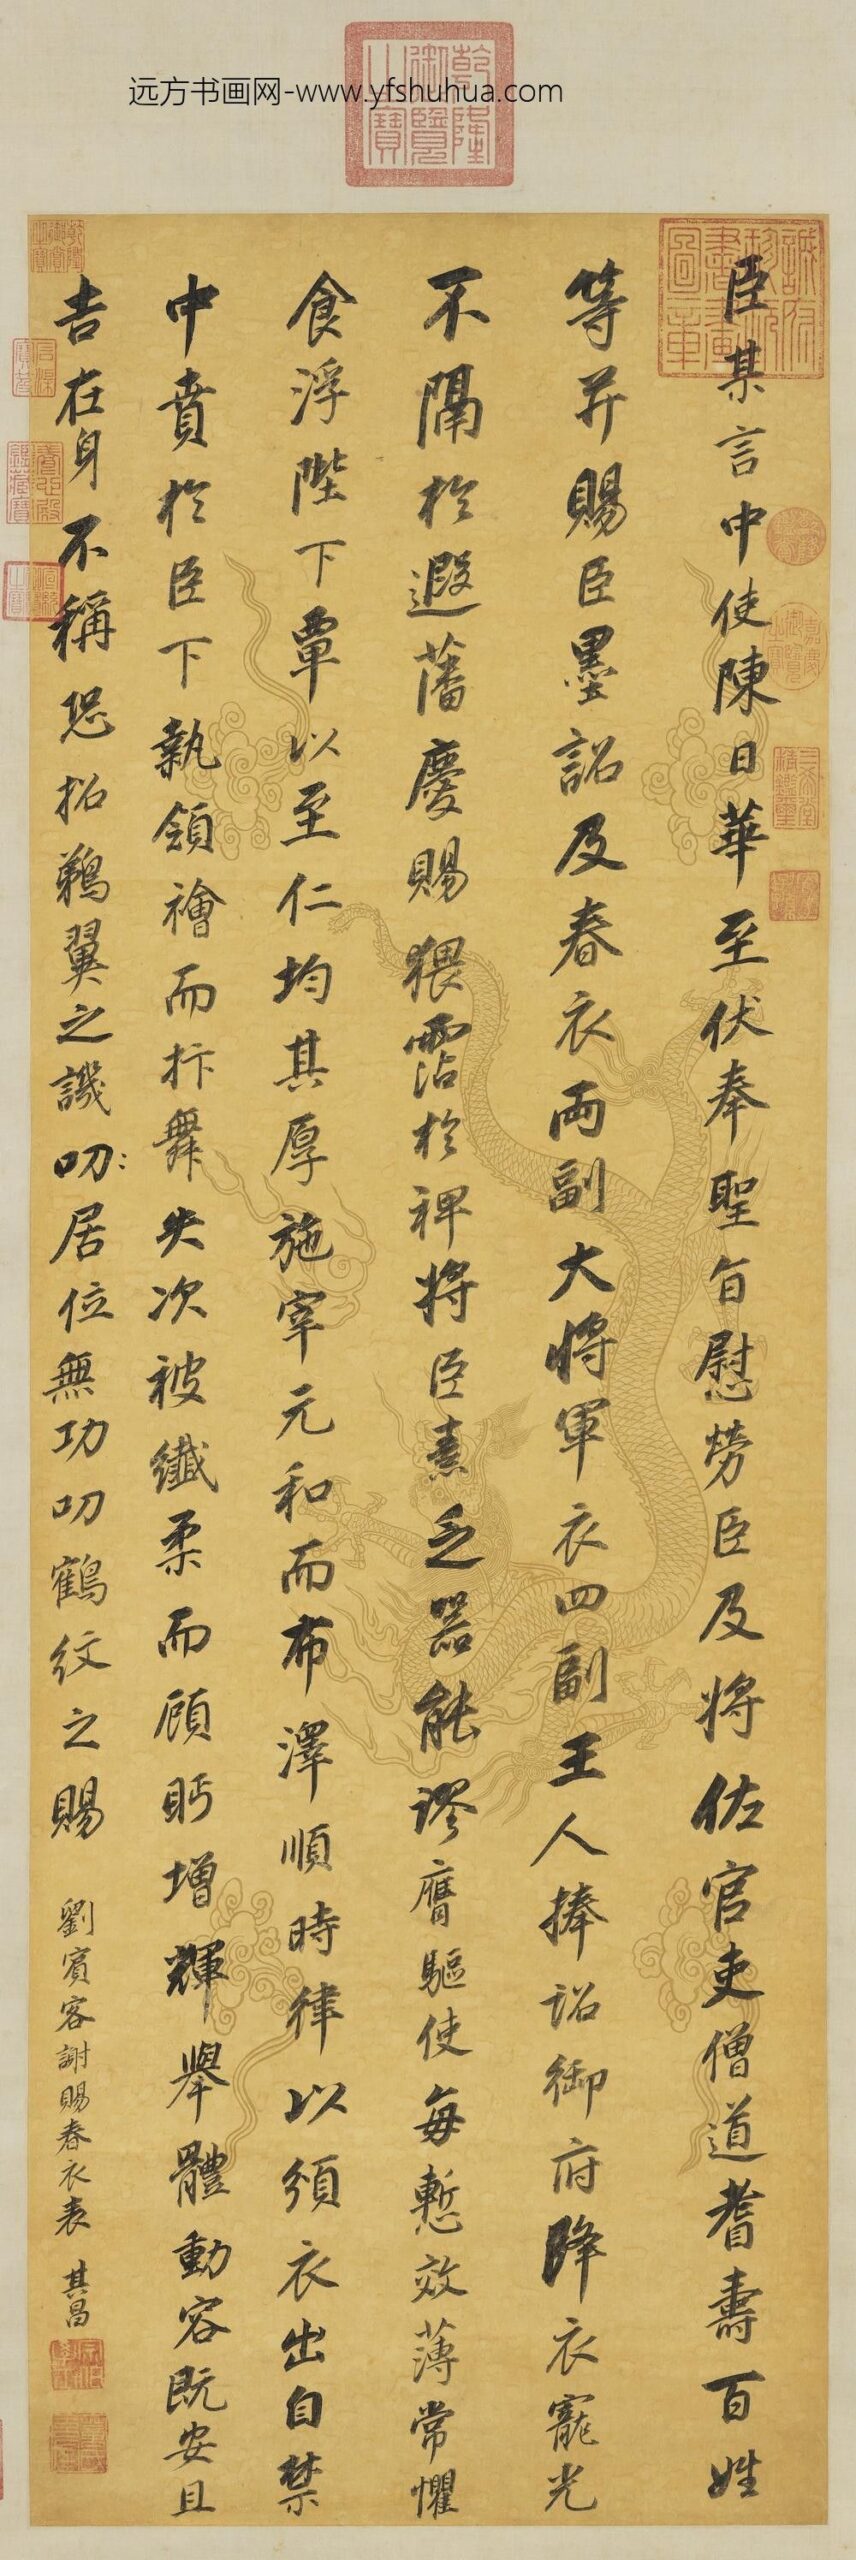 远方书画网-www.yfshuhua.com
乾隆御覽之寶
臣某言中使陳日華至伏奉聖旨慰勞臣及將佐官吏僧道耆壽百姓
等并賜臣墨詔及春衣兩副大將軍衣四副王人捧詔御府降衣寵光
不隔於遐藩慶賜猥霑於裨將臣素乏器能謬膺驅使每慙效薄常懼
食浮陛下覃以至仁均其厚施宰元和而布澤順時律以頒衣出自禁
中賁於臣下執領襘而抃舞失次被纖柔而顧眄增輝舉體動容既安且
吉在身不稱恐招鵜翼之譏叨〻居位無功叨鶴紋之賜
劉賓客謝賜春衣表 其昌